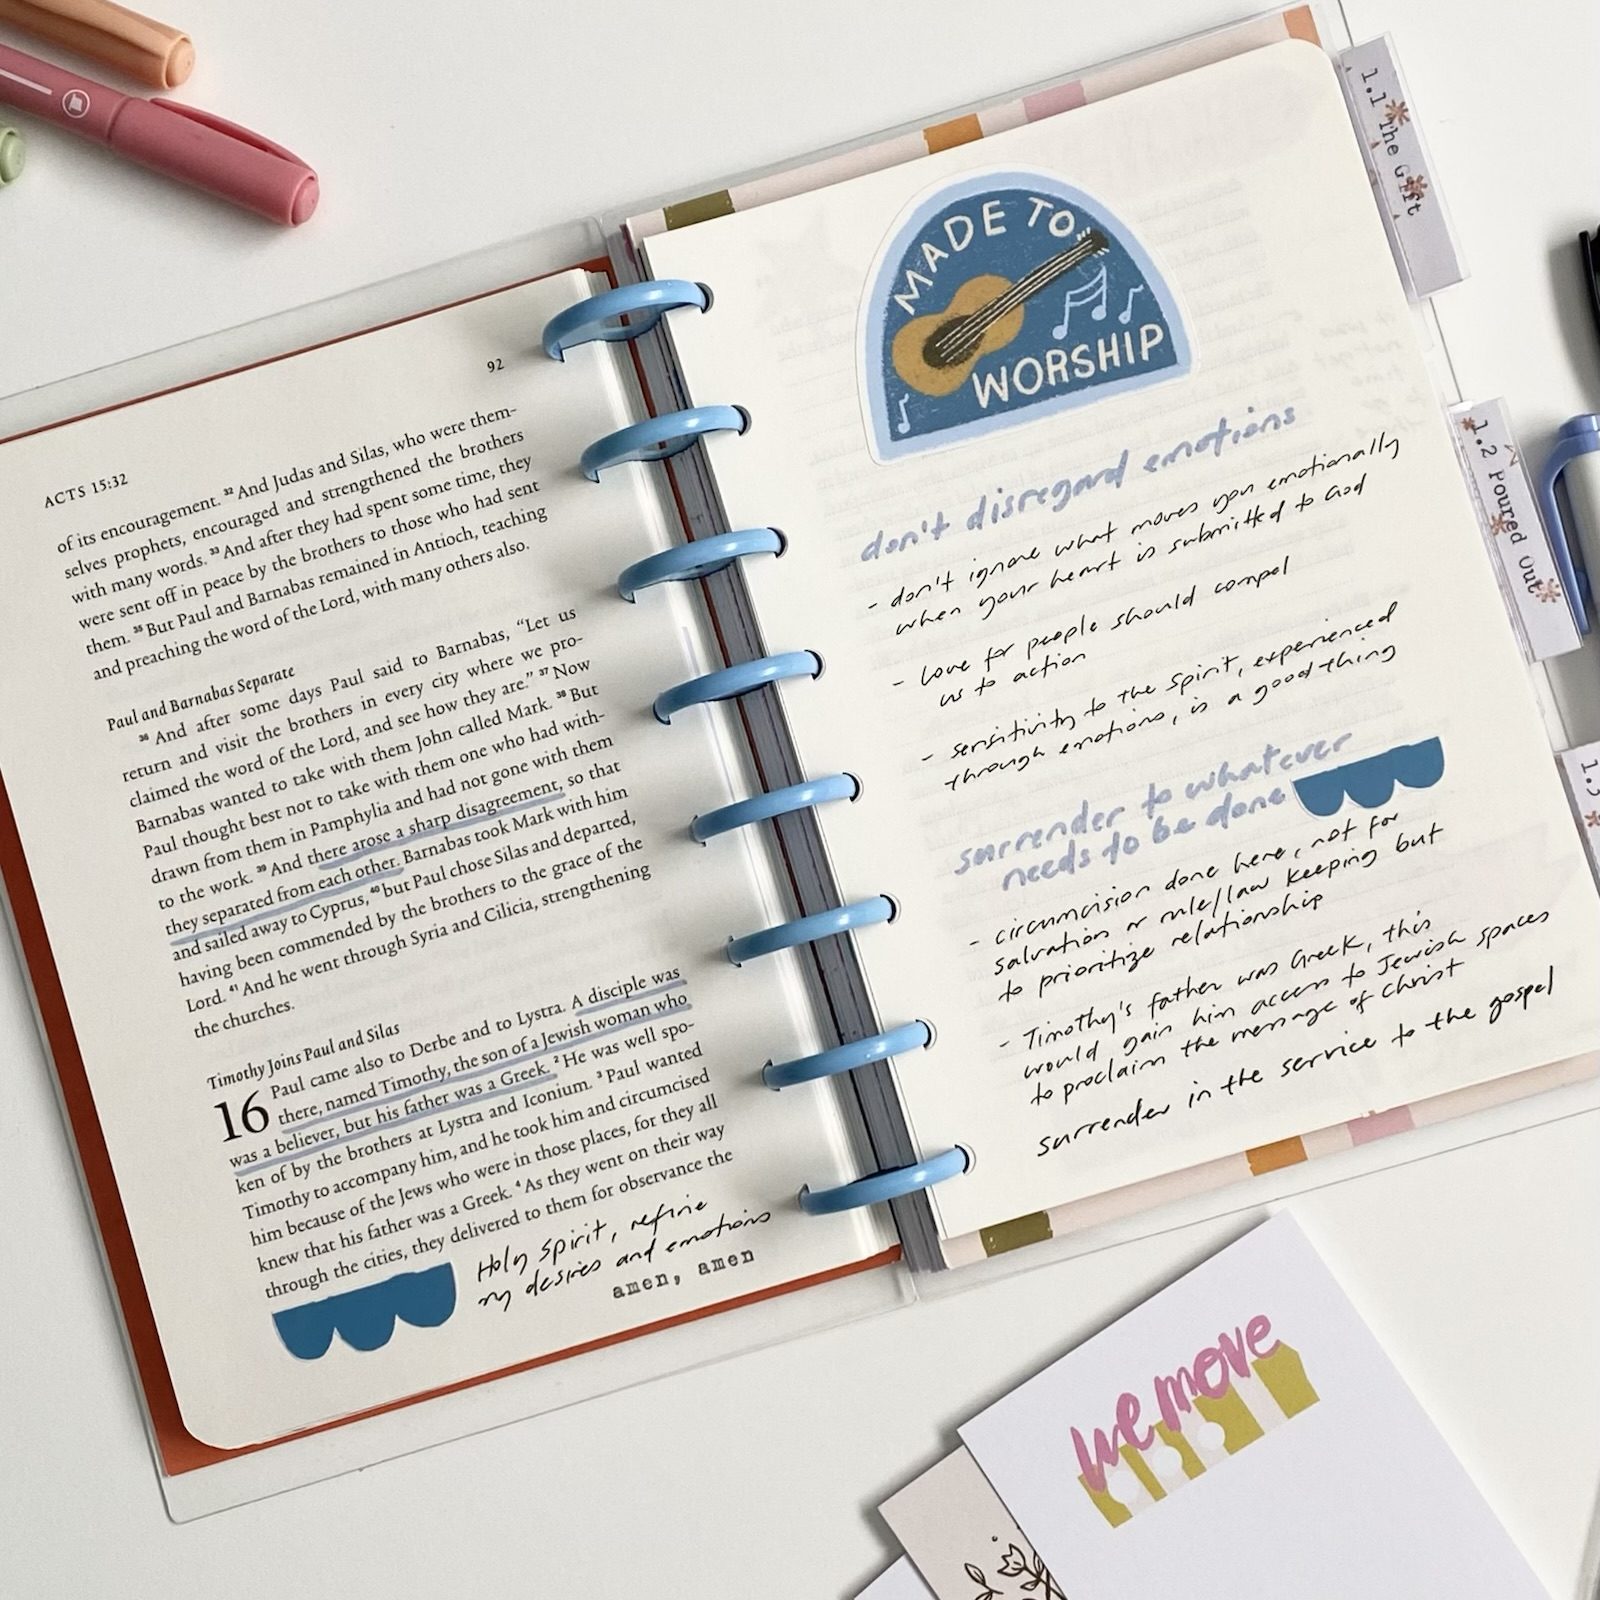 92
ACTS 15:32
of its encouragement. 32 And Judas and Silas, who were them-
selves prophets, encouraged and strengthened the brothers
with many words. 33 And after they had spent some time, they
were sent off in peace by the brothers to those who had sent
them. 35 But Paul and Barnabas remained in Antioch, teaching
and preaching the word of the Lord, with many others also.
Paul and Barnabas Separate
36 And after some days Paul said to Barnabas, “Let us
return and visit the brothers in every city where we pro-
claimed the word of the Lord, and see how they are.” 37 Now
Barnabas wanted to take with them John called Mark. 38 But
Paul thought best not to take with them one who had with-
drawn from them in Pamphylia and had not gone with them
to the work. 39 And there arose a sharp disagreement, so that
they separated from each other. Barnabas took Mark with him
and sailed away to Cyprus, 40 but Paul chose Silas and departed,
having been commended by the brothers to the grace of the
Lord. 41 And he went through Syria and Cilicia, strengthening
the churches.
Timothy Joins Paul and Silas
16 Paul came also to Derbe and to Lystra. A disciple was
there, named Timothy, the son of a Jewish woman who
was a believer, but his father was a Greek. 2 He was well spo-
ken of by the brothers at Lystra and Iconium. 3 Paul wanted
Timothy to accompany him, and he took him and circumcised
him because of the Jews who were in those places, for they all
knew that his father was a Greek. 4 As they went on their way
through the cities, they delivered to them for observance the
Holy Spirit, refine
my desires and emotions
amen, amen
MADE TO
WORSHIP
don't disregard emotions
- don't ignore what moves you emotionally
when your heart is submitted to God
- love for people should compel
us to action
- sensitivity to the Spirit, experienced
through emotions, is a good thing
surrender to whatever
needs to be done
- circumcision done here, not for
salvation or rule/law keeping but
to prioritize relationship
- Timothy's father was Greek, this
would gain him access to Jewish spaces
to proclaim the message of Christ
surrender in the service to the gospel
1.1 The Gift
1.2 Poured Out
1.3
we move